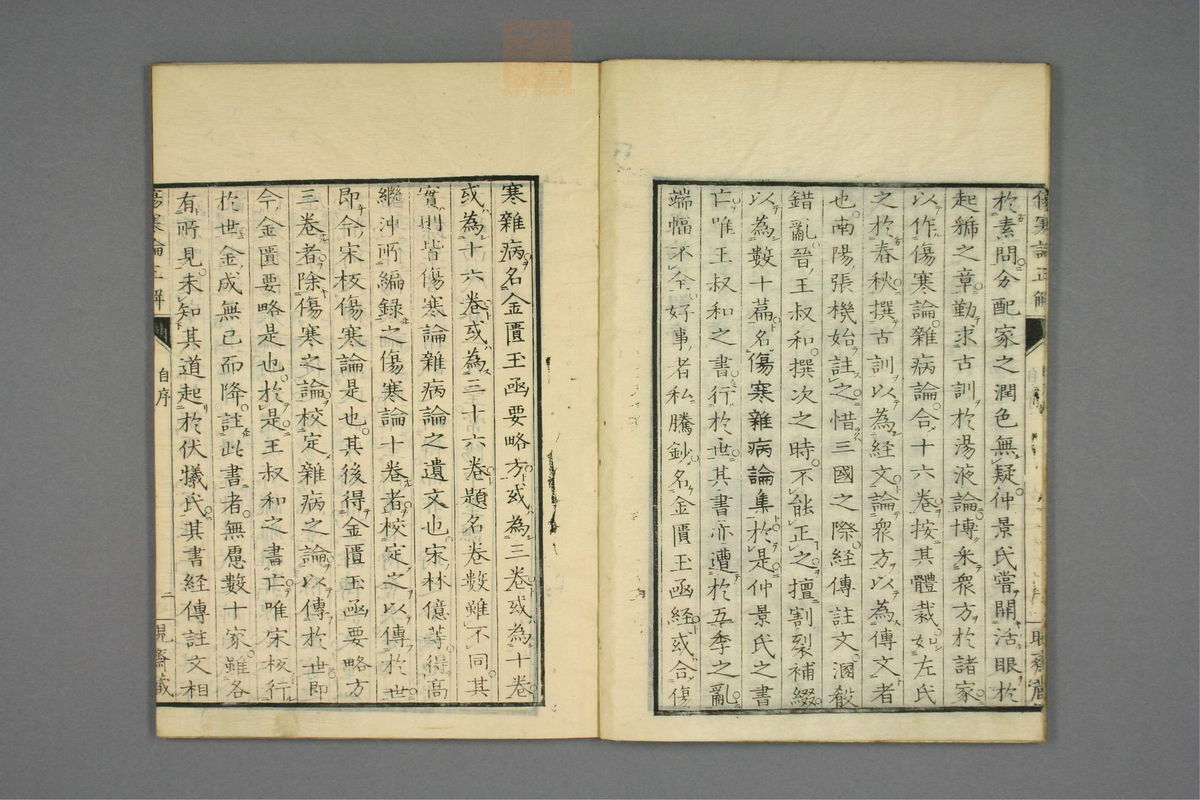 於素問分配家之潤色無疑仲景氏嘗開活眼於
起𧀹之章勤求古訓於湯液論博釆衆方於諸家
以作傷寒論雜病論合十六卷按其體裁如左氏
之於春秋撰古訓以為經文論衆方以為傳文者
也南陽張機始註之惜三國之際經傳註文溷殽
錯亂晉王叔和撰次之時不能正之擅割裂補綴
以為數十篇名傷寒雜病論集於是仲景氏之書
亡唯王叔和之書行於世其書亦遭於五季之亂
端幅不全好事者私騰鈔名金匱玉函經或合傷
寒雜病名金匱玉函要略方或為三卷或為十卷
或為十六卷或為三十六卷題名卷數雖不同其
實則皆傷寒論雜病論之遺文也宋林億等得高
繼沖所編録之傷寒論十卷者校定之以傳於世
即今宋板傷寒論是也其後得金匱玉函要略方
三卷者除傷寒之論校定雜病之論以傳於世即
今金匱要略是也於是王叔和之書亡唯宋板行
於世金成無已而降註此書者無慮數十家雖各
有所見未知其道起於伏犧氏其書經傳註文相
傷寒論正解
自序
二